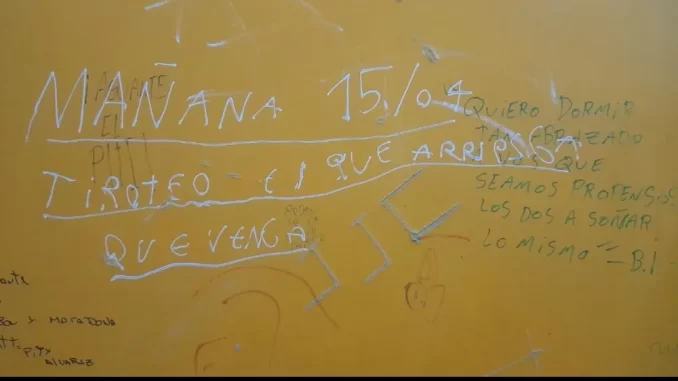 MAÑANA 15/04
TIROTEO = EL QUE ARRIESGA
QUE VENGA
AGUANTE
EL
PITY
QUIERO DORMIR
TAN ABRAZADO
QUE
SEAMOS PROPENSOS
LOS DOS A SOÑAR
LO MISMO - B.I
Y MARADONA
PITY
ALVAREZ